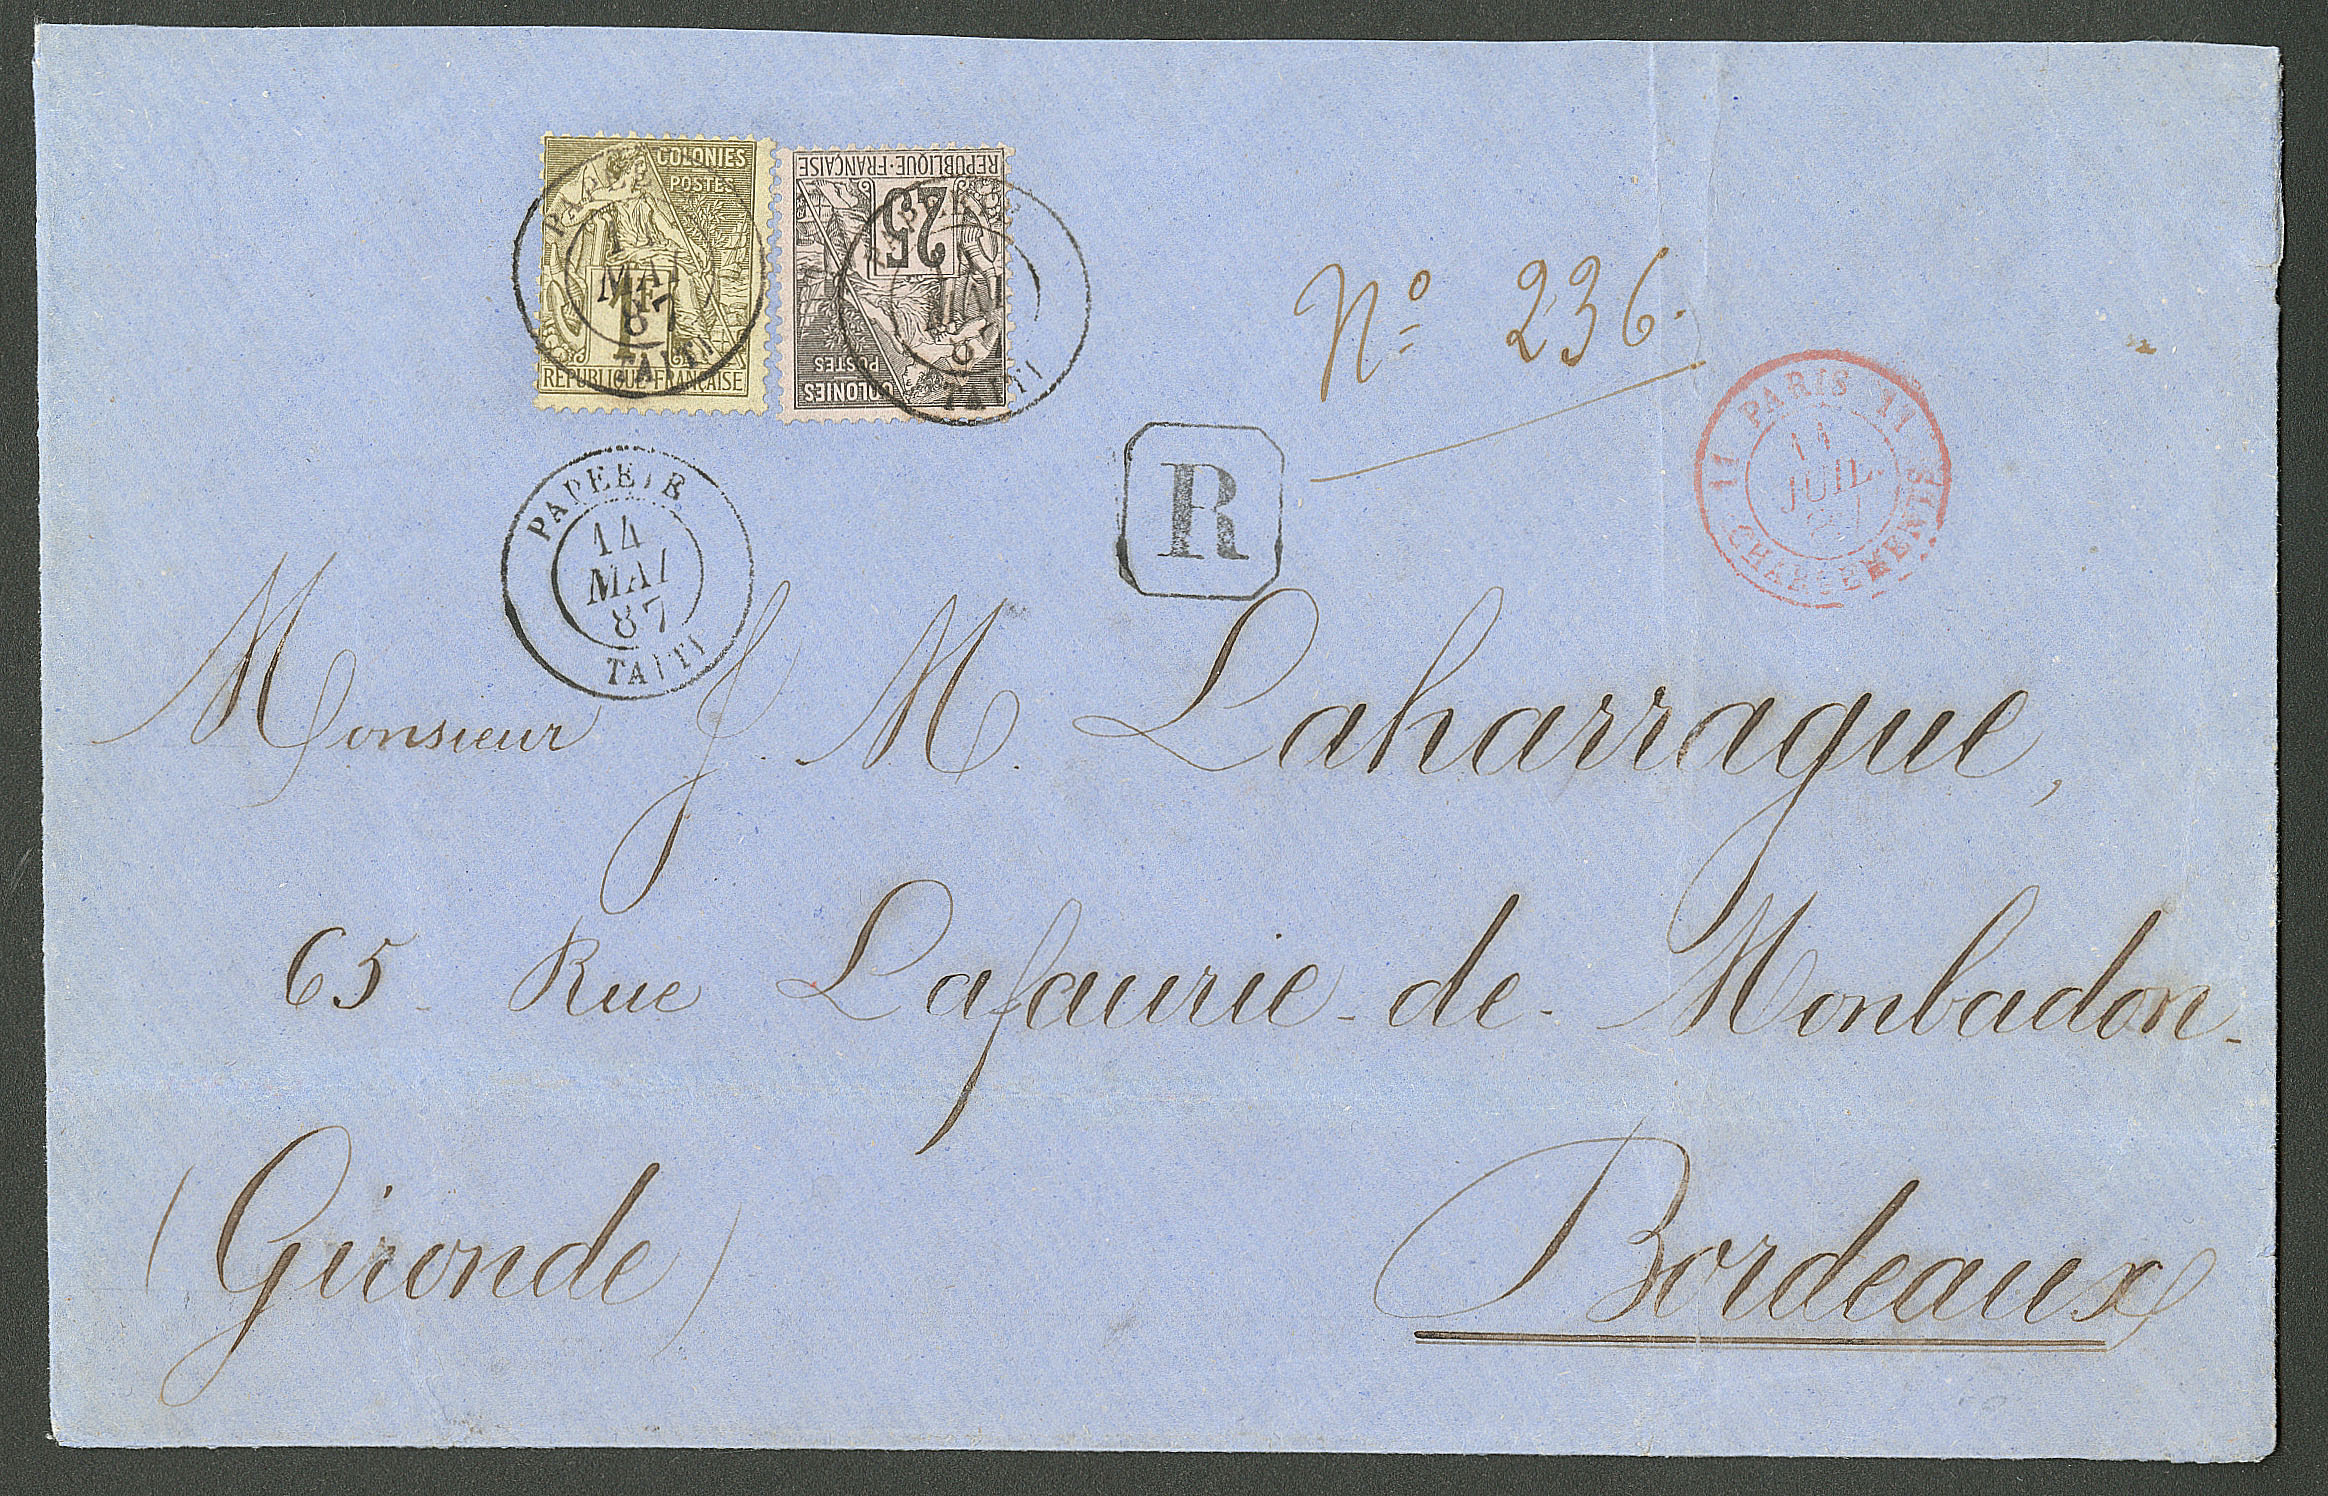 COLONIES
POSTES
RÉPUBLIQUE FRANÇAISE
PAPEETE
MAI
87
TAITI
COLONIES
POSTES
25
REPUBLIQUE·FRANÇAISE
TAITI
Nº 236.
11 PARIS 11
11
JUIL.
87
CHARGEMENTS
R
PAPEETE
14
MAI
87
TAITI
Monsieur J. M. Laharrague,
65 - Rue Lafaurie - de - Monbadon -
(Gironde)
Bordeaux